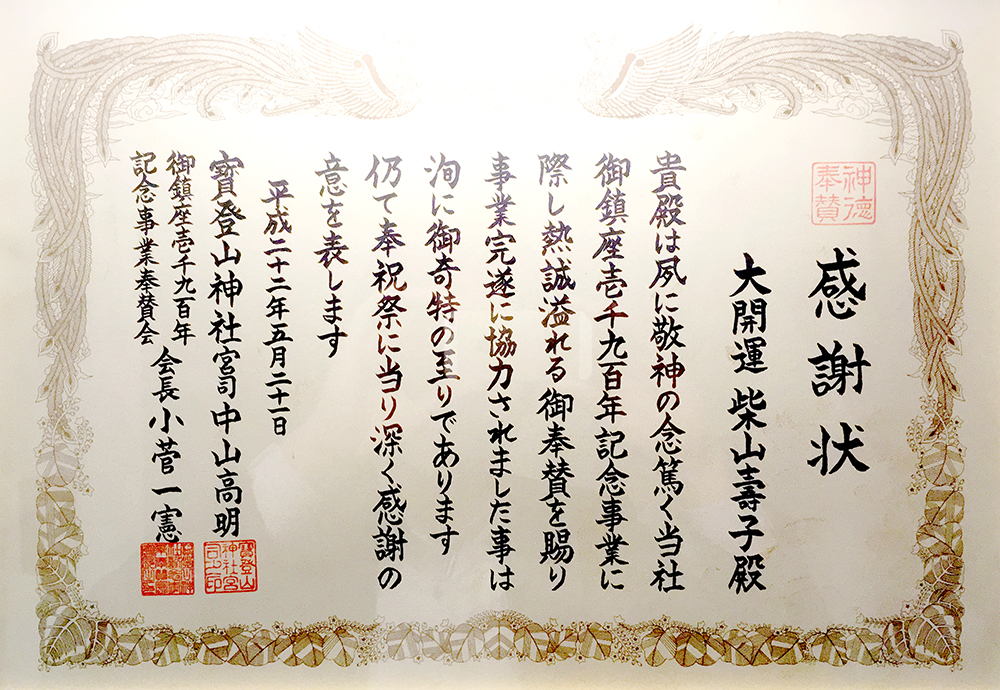 神徳
奉賛
感謝状
大開運 柴山壽子殿
貴殿は夙に敬神の念篤く当社
御鎮座壱千九百年記念事業に
際し熱誠溢れる御奉賛を賜り
事業完遂に協力されました事は
洵に御奇特の至りであります
仍て奉祝祭に当り深く感謝の
意を表します
平成二十二年五月二十一日
寳登山神社宮司中山高明
寳登山
神社宮
司之印
御鎮座壱千九百年
記念事業奉賛会
会長 小菅一憲